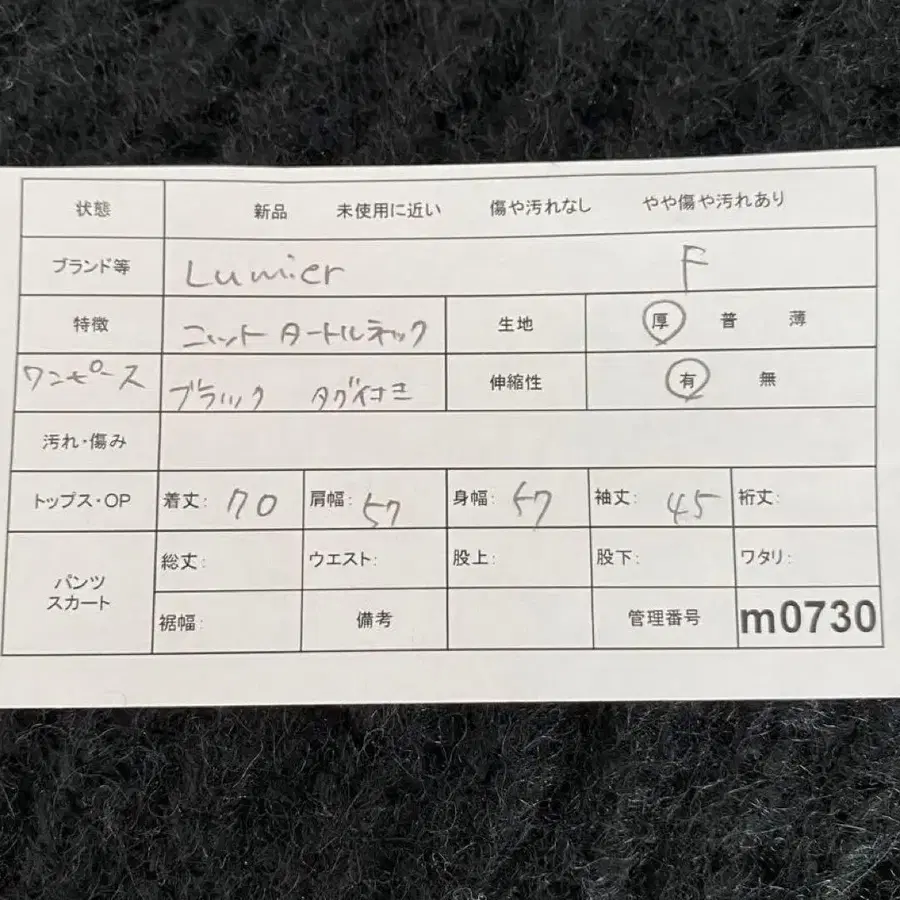 状態 新品 未使用に近い 傷や汚れなし やや傷や汚れあり
ブランド等 Lumier F
特徴 ニット タートルネック 生地 厚 普 薄
ワンピース ブラック タグ付き 伸縮性 有 無
汚れ・傷み
トップス・OP 着丈: 70 肩幅: 57 身幅: 57 袖丈: 45 裄丈:
パンツ スカート 総丈: ウエスト: 股上: 股下: ワタリ:
裾幅: 備考 管理番号 m0730